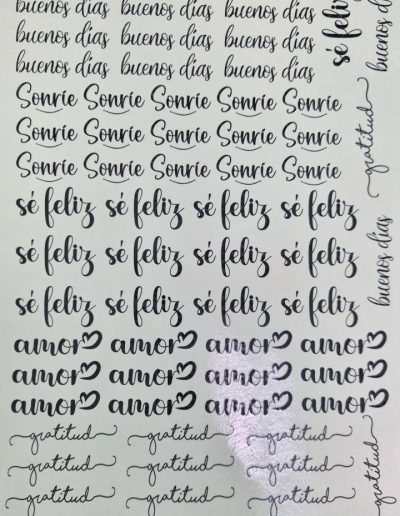 buenos días buenos días buenos días
buenos días buenos días buenos días
buenos días buenos días buenos días
Sonríe Sonríe Sonríe Sonríe Sonríe
Sonríe Sonríe Sonríe Sonríe Sonríe
Sonríe Sonríe Sonríe Sonríe Sonríe
sé feliz sé feliz sé feliz sé feliz
sé feliz sé feliz sé feliz sé feliz
sé feliz sé feliz sé feliz sé feliz
amor amor amor amor
amor amor amor amor
amor amor amor amor
gratitud gratitud gratitud
gratitud gratitud gratitud
gratitud gratitud gratitud
sé feliz
buenos días
gratitud
buenos días
gratitud